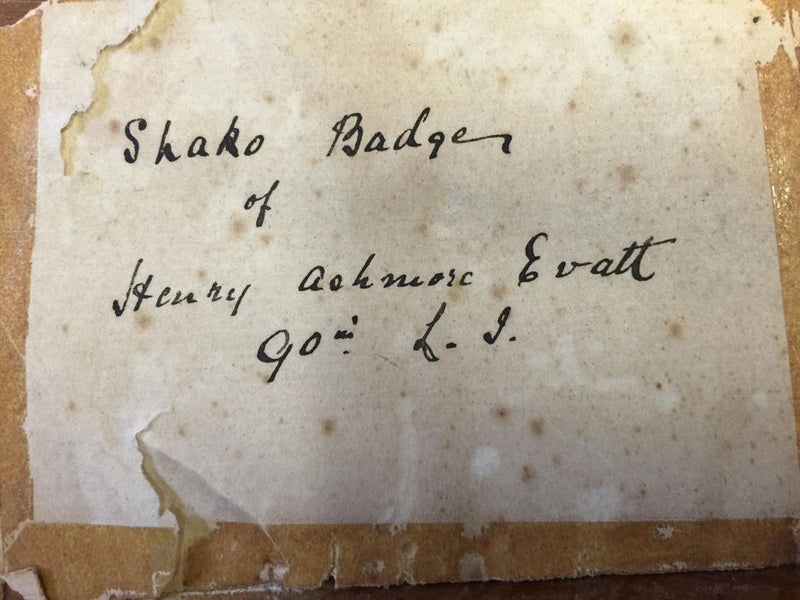 Shako Badge
of
Henry Ashmore Evatt
90th L. I.